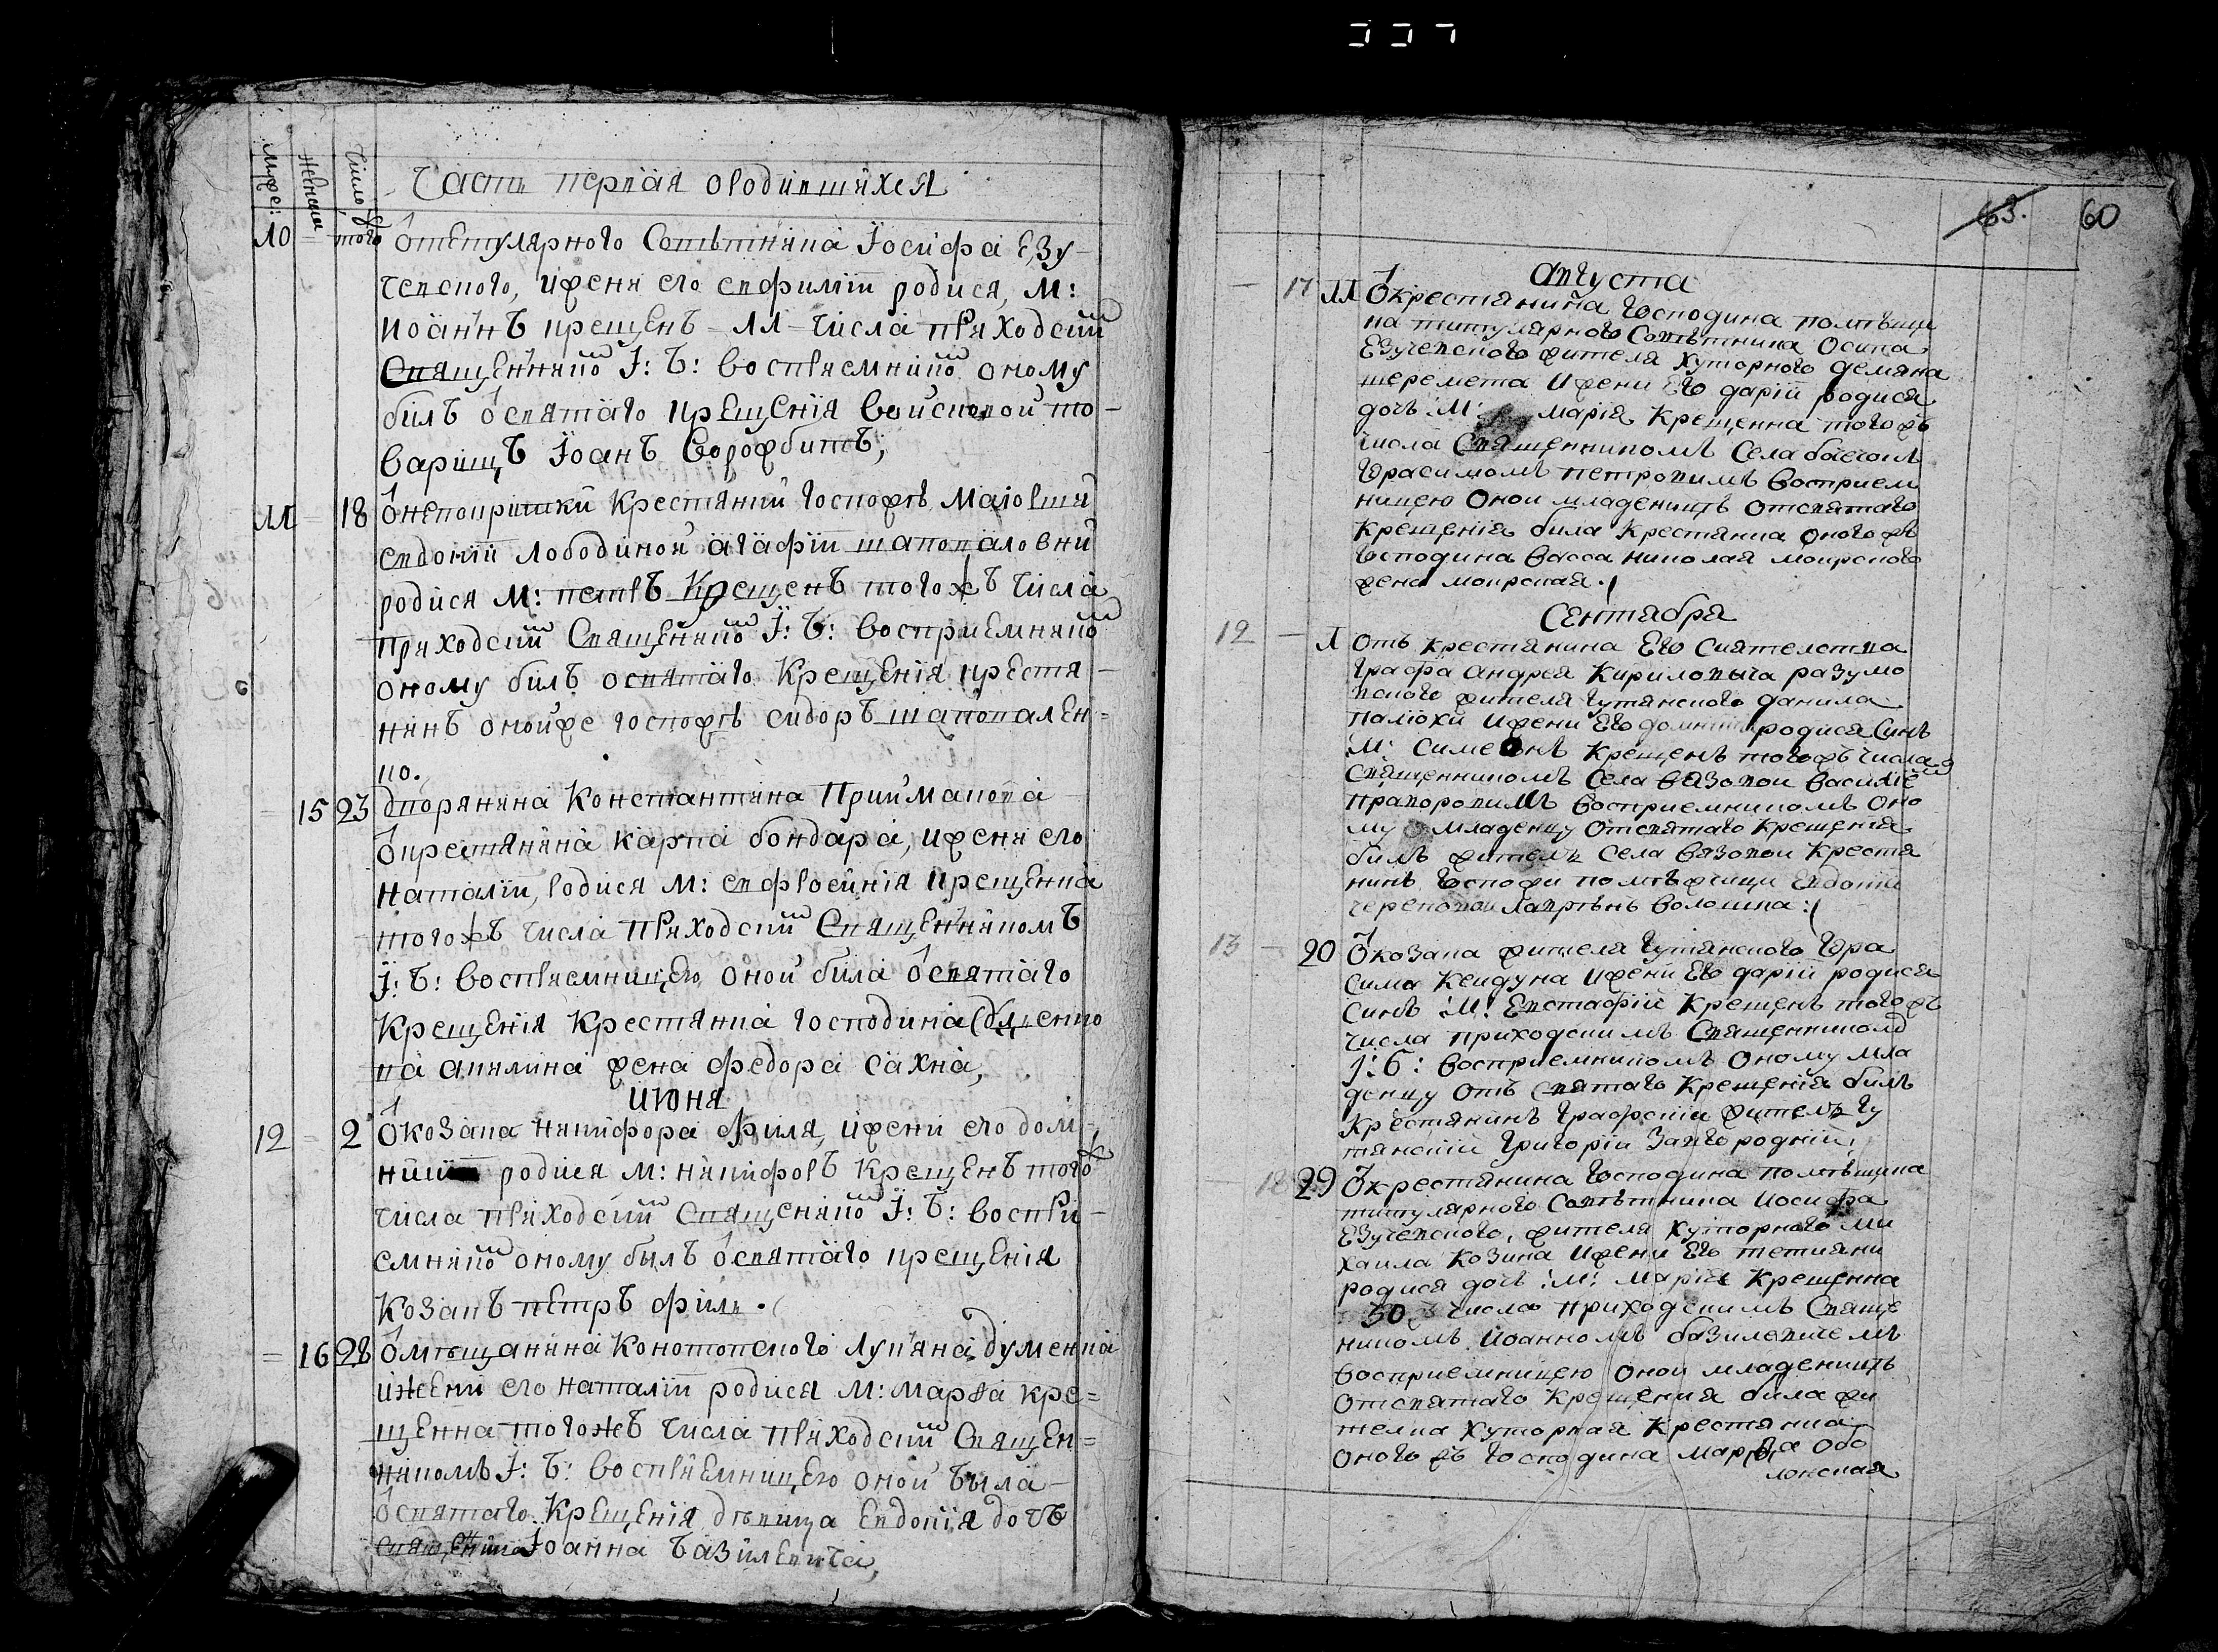 Муже:
Женска
Число
Часть первая ородившихся
10 = того Отетулярного Советника Іосифа Езу-
чевского, ижени его евфиміи родися, м:
иоаннъ крещенъ - 11 - числа приходским
Священником І: Б: восприемником оному
билъ освятаго крещенія войсковой то-
варищъ Іоанъ Ворожбитъ;
11 = 18 Онепокритки Крестянки госпожѣ Маіорши
евдокіи лободиной агафіи шаповаловни
родися м: петръ Крещенъ тогожъ числа
приходским Священиком І: Б: восприемником
оному билъ освятаго Крещенія крестя-
нинъ онойже госпожѣ сидоръ шаповален=
ко.
= 15 23 дворянина Константина Прийманова
Окрестянина карпа бондара, ижени его
наталіи, родися м: евфросинія крещенна
тогожъ числа приходским Священникомъ
І: Б: восприемницею оной била освятаго
Крещенія Крестянка господина
акилина жена федора сахна,
июня
12 = 2 Окозака никифора филя, ижени его дом-
никіи родися м: никифоръ крещенъ тогож
числа приходским Священиком І: Б: воспри-
емником оному былъ освятаго крещенія
Козакъ петръ филь.
= 16 28 Омѣщанина Конотопского Лукяна думенка
иженѣ его наталіи родися м: марѳа кре=
щенна тогожъ числа приходским Священ=
никомъ І: Б: восприемницею оной была
освятаго Крещенія дѣвица Евдокія дочь
священика Іоанна Базилевича,
63. 60
Августа
- 17 11 Окрестянина Господина помѣщи
ка титулярного Совѣтника Осипа
Езучевского жителя Хуторного демяна
шеремета ижени Его дарїи родися
дочь :М: марія Крещенна тогожъ
числа Священникомъ Села
Герасимомъ петровимъ восприем
ницею Оной младеницѣ Отсвятаго
Крещенія била Крестянка оногожъ
Господина Васса николая мокрского
жена мокрская.
Сентября
12 - 1 Отъ крестянина Его Сиятелства
Графа Андрея Кириловыча разумо
вского жителя гутянского данила
палюхи ижени Его домникии родися Синъ
М: Симеонъ Крещенъ тогожъ числа
Священникомъ Села вязовой василіем
прапоровимъ восприемникомъ Оно
му младенцу Отсвятаго Крещенія
билъ жителъ Села вязовой Крестя
нинъ Госпожи помѣщици Евдокіи
лаврѣнъ волошка :/
13 - 20 Окозака жителя гутянского Гера
сима Кейдуна ижени Его дарїи родися
Синъ М: Евстафій Крещенъ тогожъ
числа приходскимъ Священником
І: Б: восприемникомъ Оному мла
денцу Отъ Святаго Крещенія билъ
Крестянинъ Графскій жителъ гу
тянскій Григорій Загородній;
- 18 29 Окрестянина Господина помѣщика
титулярного Совѣтника Иосифа
Езучевского, жителя Хуторного Ми
хаила Козина ижени Его тетияни
родися дочь :М: Марія Крещенна
30 числа приходскимъ Свяще
никомъ Иоанномъ базилевичемъ
восприемницею Оной младеницѣ
Отсвятаго Крещения била жи
телка Хуторная Крестянка
оногожъ господина марѳа Обо
лонская